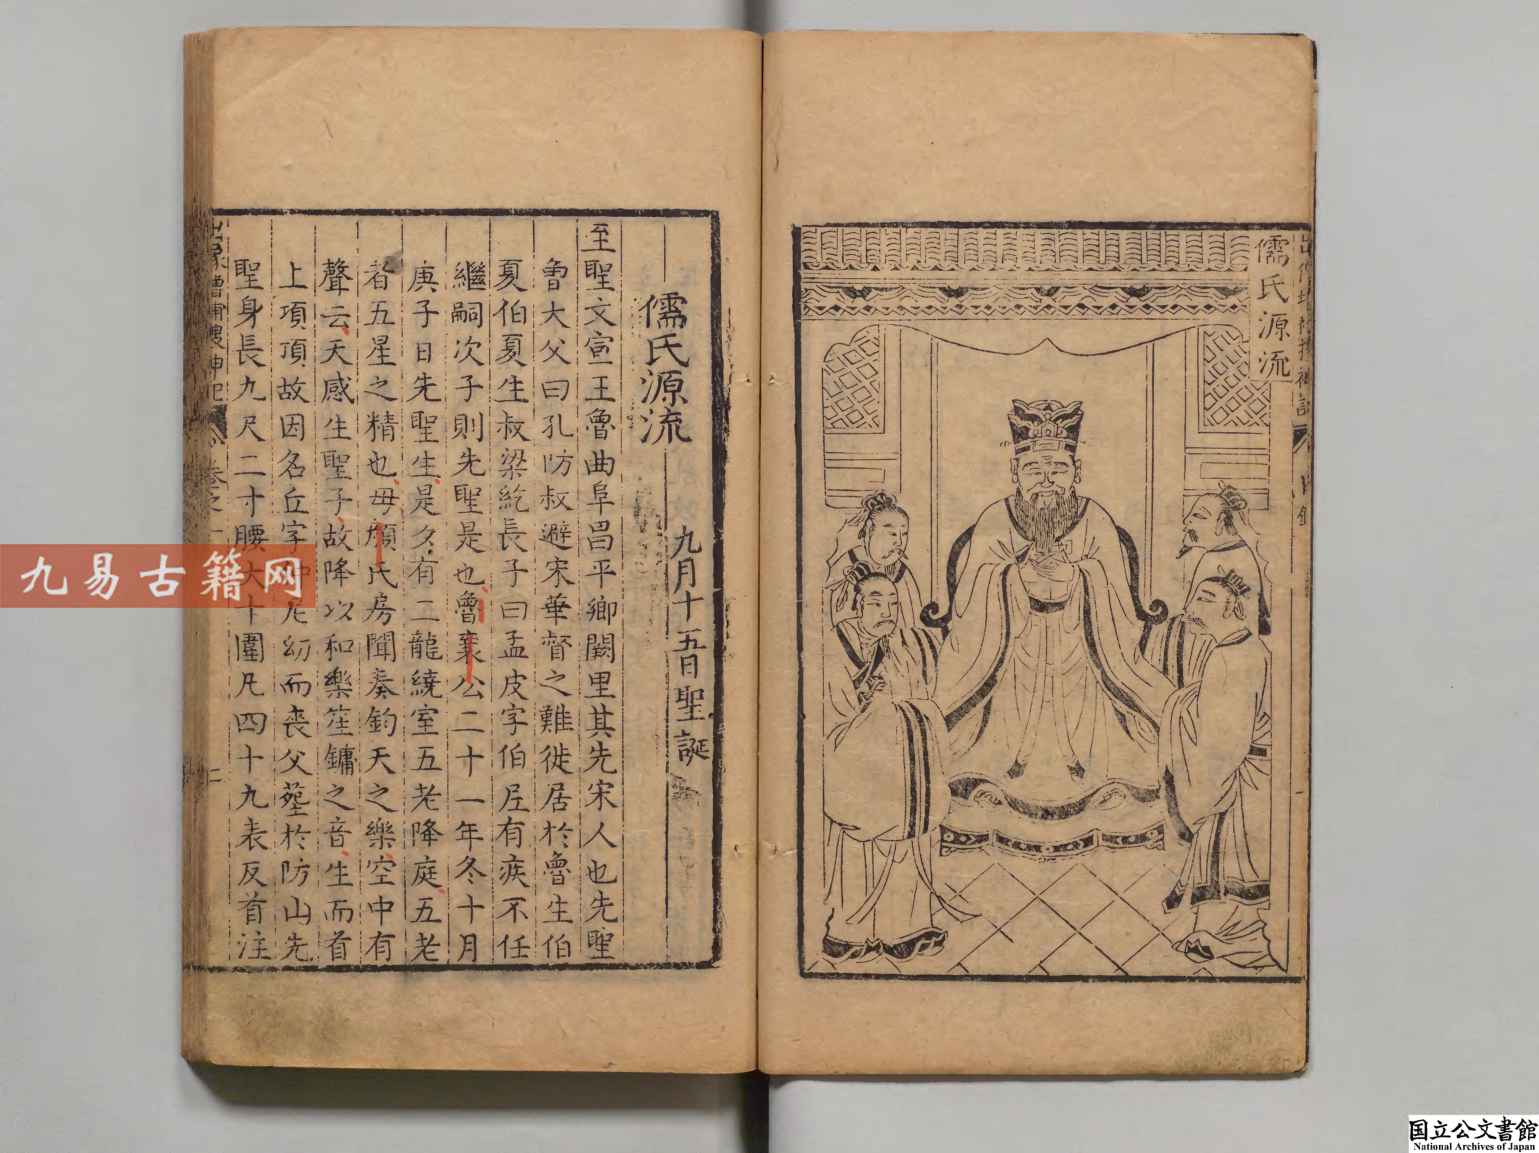 儒氏源流
儒氏源流
九月十五日聖誕
至聖文宣王魯曲阜昌平鄉闕里其先宋人也先聖
魯大父曰孔防叔避宋華督之難徙居於魯生伯
夏伯夏生叔梁紇長子曰孟皮字伯尼有疾不任
繼嗣次子則先聖是也魯襄公二十一年冬十月
庚子日先聖生是夕有二龍繞室五老降庭五老
者五星之精也母顏氏房聞奏鈞天之樂空中有
聲云天感生聖子故降以和樂笙鏞之音生而首
上頂頂故因名丘字仲尼幼而喪父塟於防山先
聖身長九尺二寸腰大十圍凡四十九表反首注
卷之一
二
九易古籍网
国立公文書館
National Archives of Japan